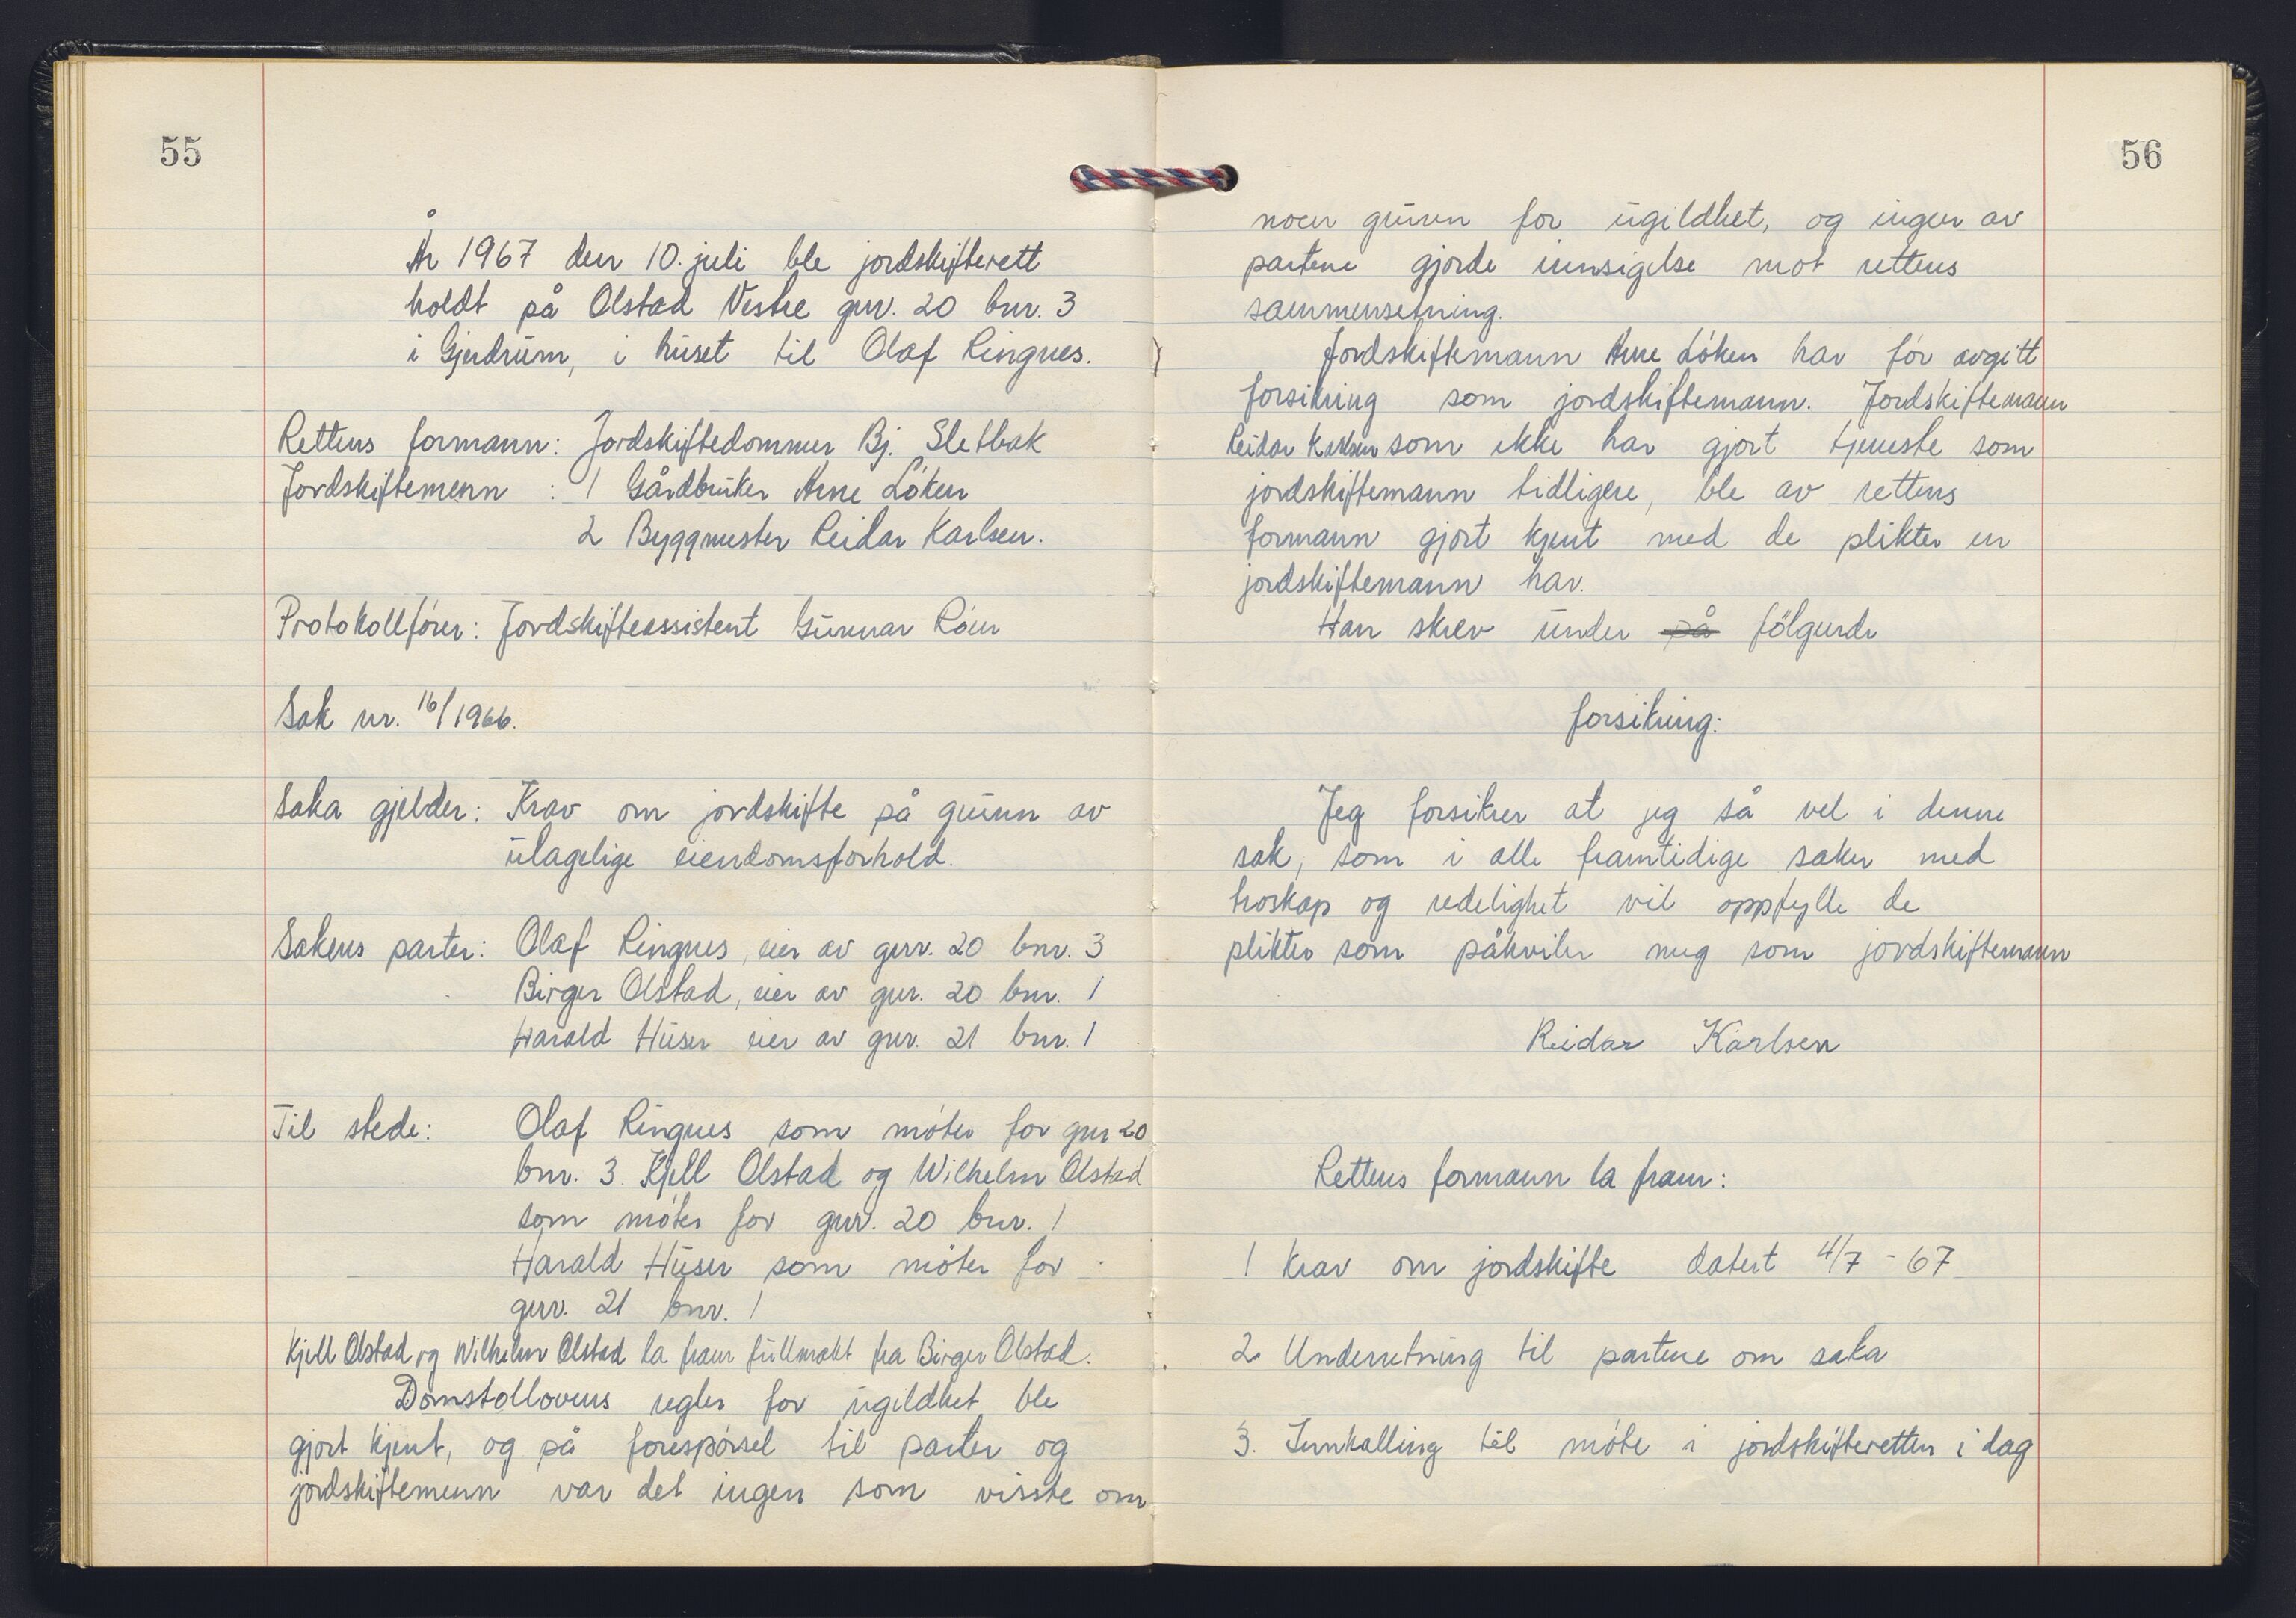 55
År 1967 den 10. juli ble jordskifterett
holdt på Olstad Vestre gnr. 20 bnr. 3
i Gjerdrum, i huset til Olaf Ringnes.
Rettens formann: Jordskiftedommer Bj. Sletbak
Jordskiftemenn : 1 Gårdbruker Arne Löken
2 Byggmester Reidar Karlsen.
Protokollförer: Jordskifteassistent Gunnar Röen
Sak nr. 16/1966.
Saka gjelder: Krav om jordskifte på grunn av
ulagelige eiendomsforhold.
Sakens parter: Olaf Ringnes, eier av gnr. 20 bnr. 3
Birger Olstad, eier av gnr. 20 bnr. 1
Harald Huser eier av gnr. 21 bnr. 1
Til stede: Olaf Ringnes som möter for gnr 20
bnr. 3. Kjell Olstad og Wilhelm Olstad
som möter for gnr. 20 bnr. 1
Harald Huser som möter for
gnr. 21 bnr. 1
Kjell Olstad og Wilhelm Olstad la fram fullmakt fra Birger Olstad.
Domstollovens regler for ugildhet ble
gjort kjent, og på forespörsel til parter og
jordskiftemenn var det ingen som visste om
56
noen grunn for ugildhet, og ingen av
partene gjorde innsigelse mot rettens
sammensetning.
Jordskiftemann Arne Löken har för avgitt
forsikring som jordskiftemann. Jordskiftemann
Reidar Karlsen som ikke har gjort tjeneste som
jordskiftemann tidligere, ble av rettens
formann gjort kjent med de plikter en
jordskiftemann har.
Han skrev under på fölgende
forsikring:
Jeg forsikrer at jeg så vel i denne
sak, som i alle framtidige saker med
troskap og redelighet vil oppfylle de
plikter som påkviler meg som jordskiftemann
Reidar Karlsen
Rettens formann la fram:
1 Krav om jordskifte datert 4/7 - 67
2 Underretning til partene om saka
3. Innkalling til möte i jordskifteretten i dag